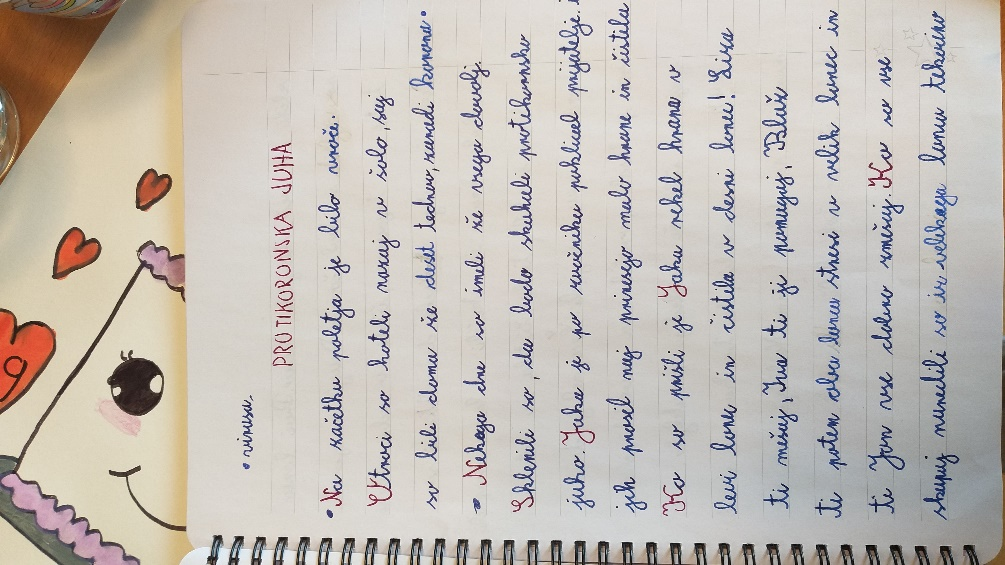 • virusu.
PROTIKORONSKA JUHA
• Na začetku poletja je bilo vroče.
Učenci so hoteli nazaj v šolo, saj
so bili doma že deset tednov, zaradi korone.
• Nekega dne so imeli že vsega dovolj.
Sklenili so, da bodo skuhali protikoronsko
juho. Jaka je po zvočniku poklical prijatelje.
jih prosil naj prinesejo malo hrane in čistila
Ko so prišli je Jaka rekel hrano v
levi lonec in čistila v desni lonec! Liza
ti mešaj, Iva ti ji pomagaj, Bluž
ti potem oba lonca stresi v velik lonec in
ti Jon vse dobro zmešaj. Ko so vse
skupaj naredili so iz velikega lonca tekočino